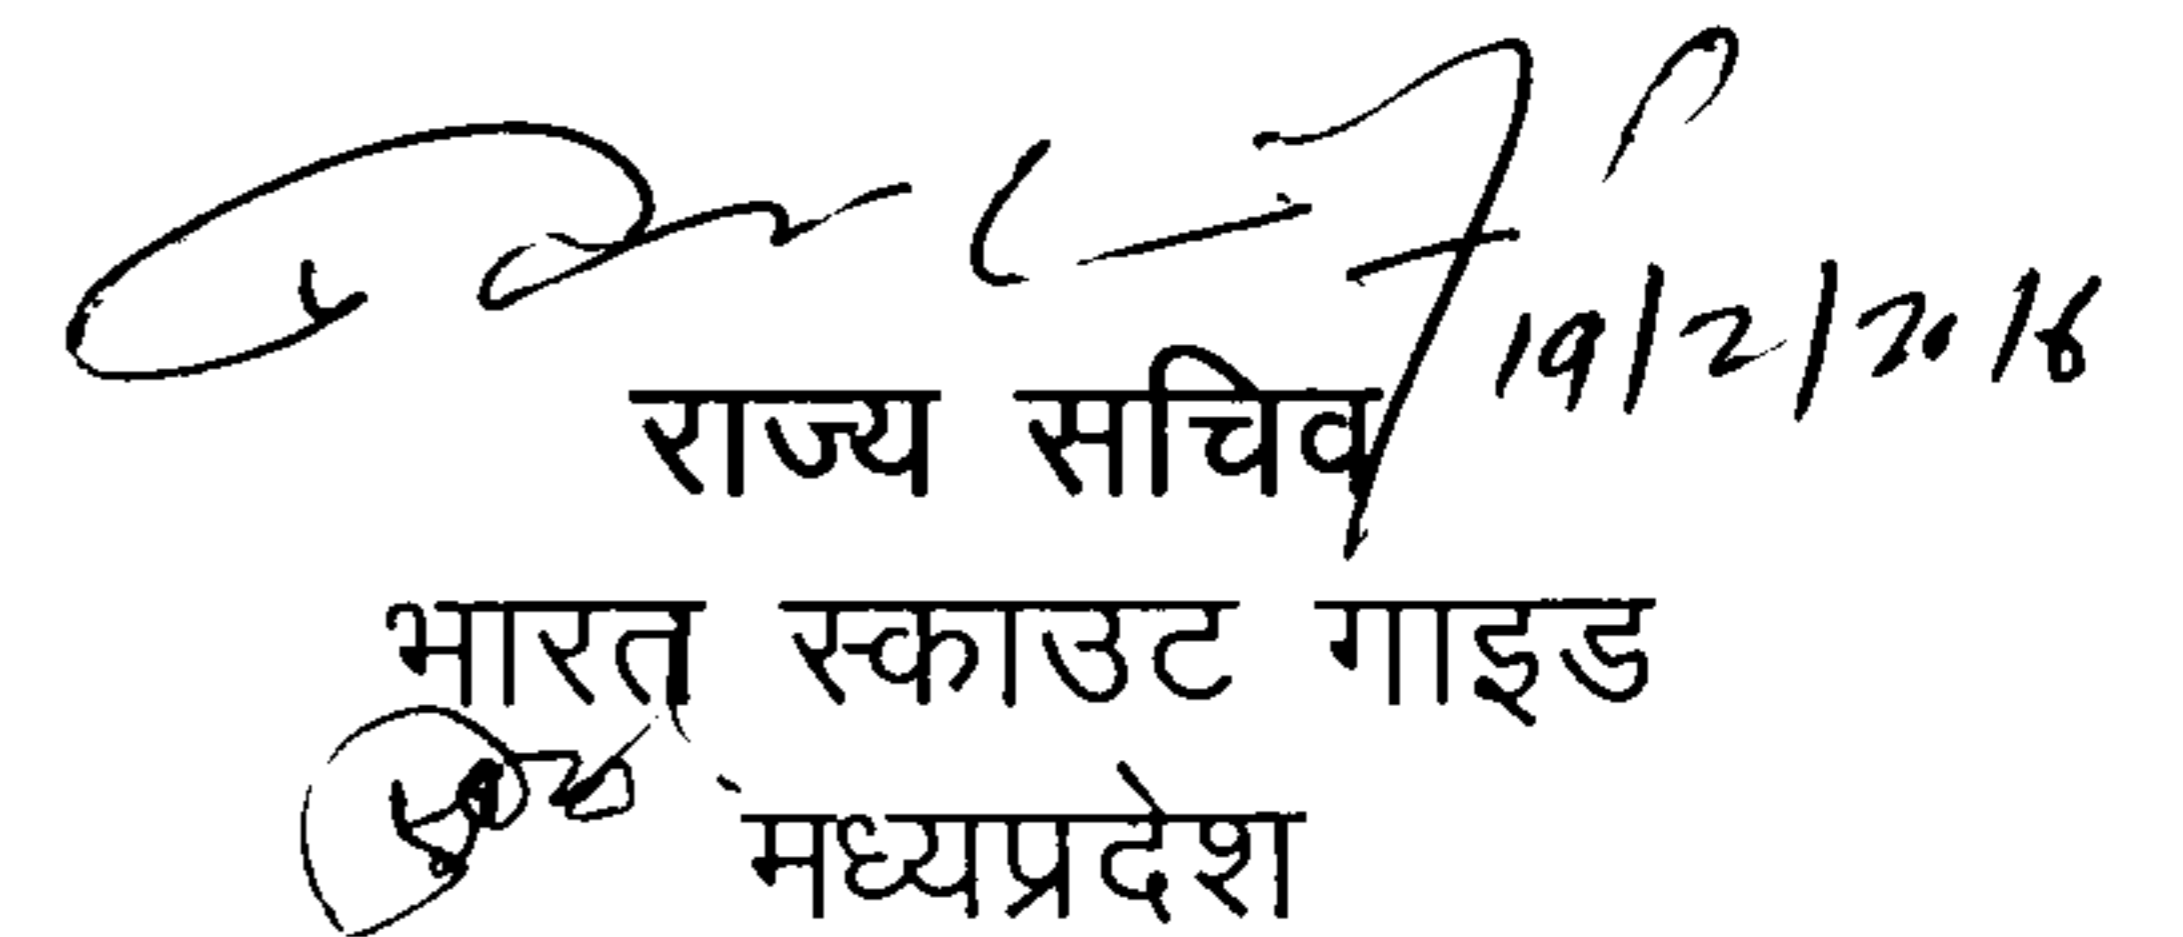 19/2/2018
राज्य सचिव
भारत स्काउट गाइड
मध्यप्रदेश